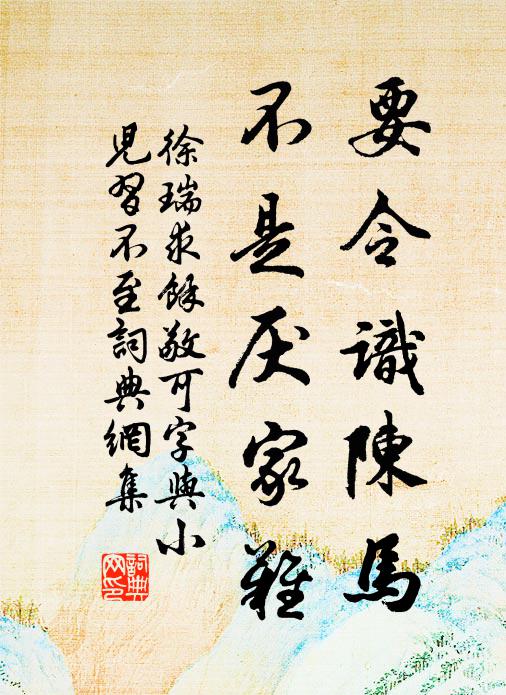 要令識陳馬
不是厌家雞
徐瑞求餘敬可字與小
兒習不至詞典網集
詞典
网印